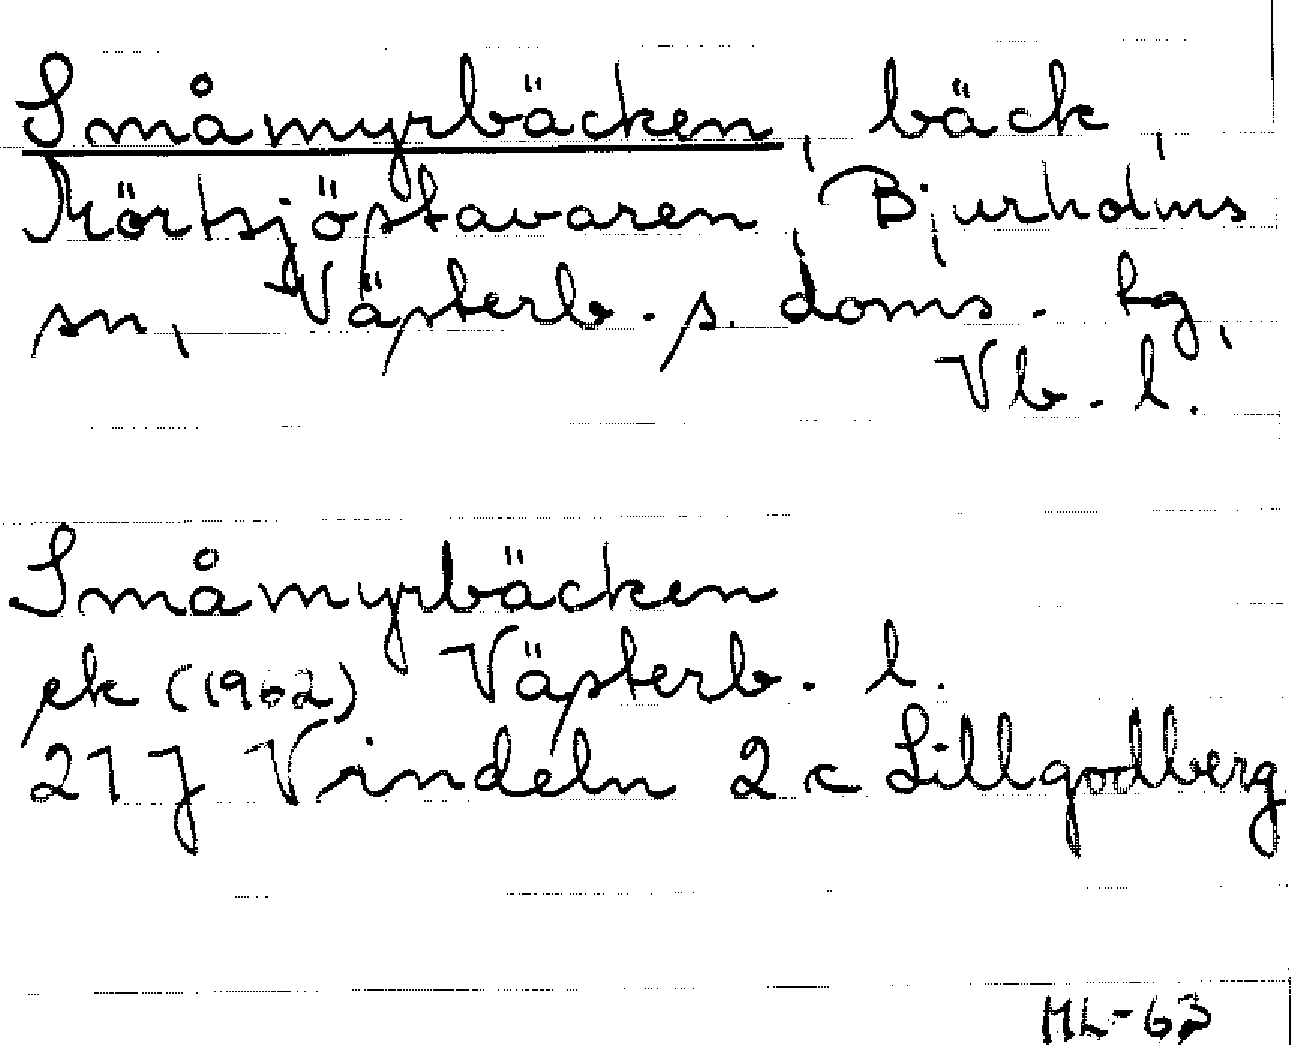 Småmyrbäcken, bäck,
Mörtsjöstavaren, Bjurholms
sn, Västerb. s. doms. tg,
Vb. l.
Småmyrbäcken
ek (1962) Västerb. l.
21 J Vindeln 2 c Lillgodberg
ML-63